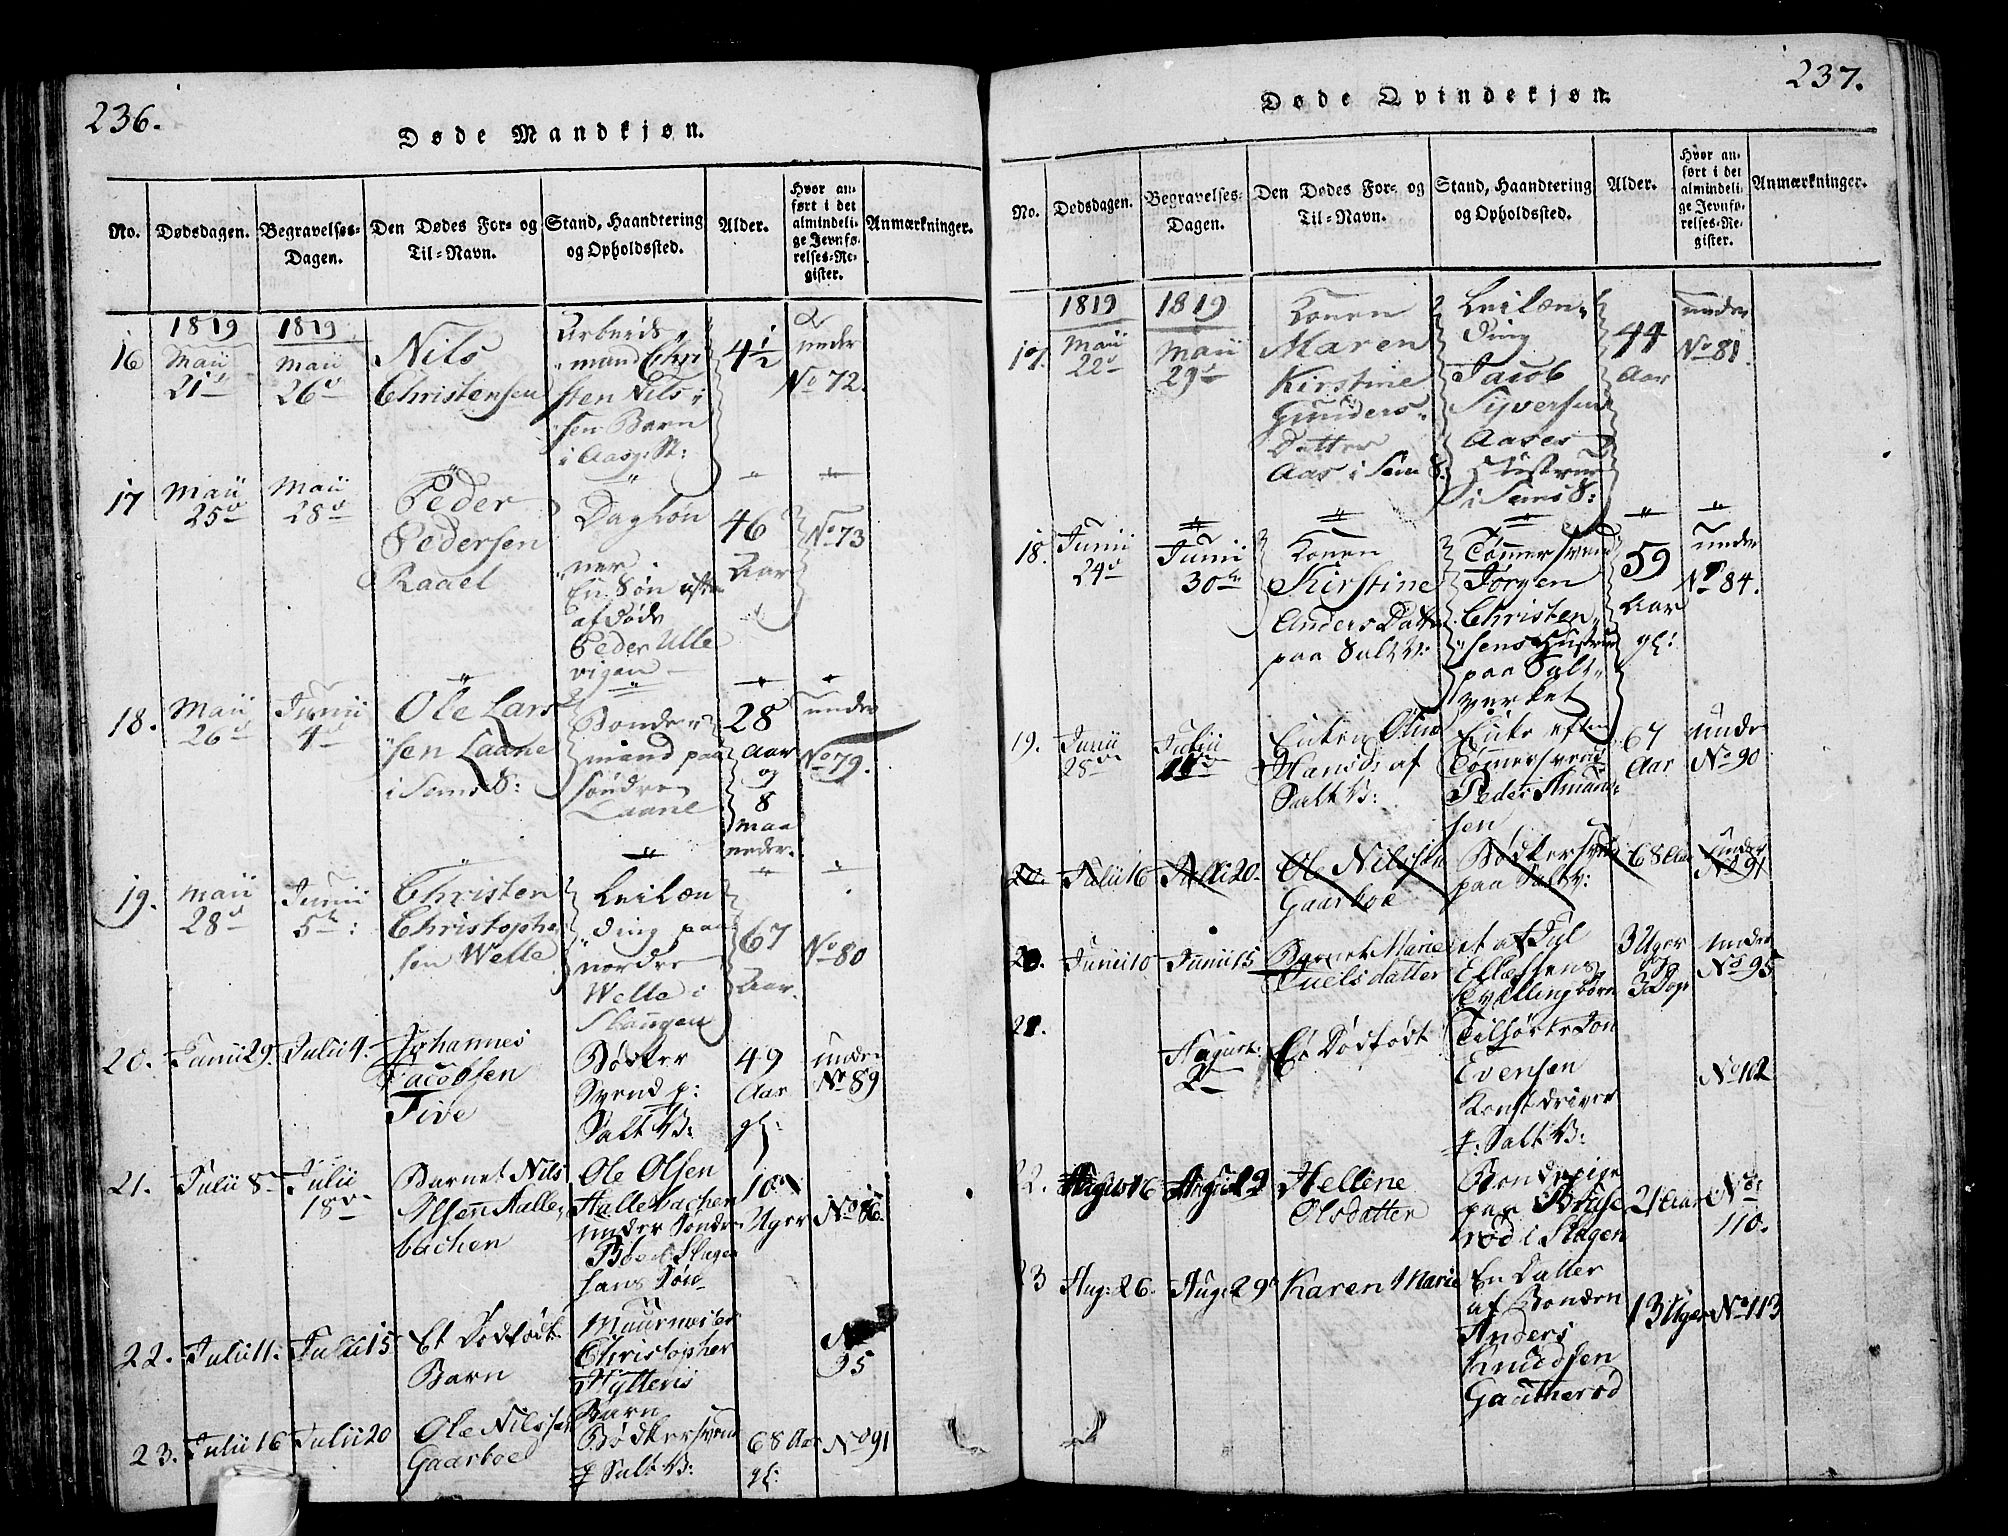 236.
Døde Mandkjøn.
No.
Dødsdagen.
Begravelses-
Dagen.
Den Dødes For- og
Til-Navn.
Stand, Haandtering
og Opholdssted.
Alder.
Hvor an-
ført i det
almindeli-
ge Jevnfø-
relses-Re-
gister.
Anmærkninger.
16
1819
Maii
21de
1819
Maii
26de
Nils
Christensen
Arbeids-
mand Chri
sten Nils-
sen Barn
i Aasg: St:
4½
under
No 72.
17
Maii
25de
Maii
28de
Peder
Pedersen
Raael
Dagløn
ner
En Søn efter
afdøde
Peder Ulle
vigen
46
Aar
No 73
18.
Maii
26de
Junii
4de
Ole Lars
sen Laane
i Sems S:
Bonde-
mand paa
søndre
Laane
28
Aar
og
8
Maa
neder.
under
No 79.
19.
Maii
28de
Junii
5te:
Christen
Christophe
sen Welle
Leilæn
ding paa
nordre
Welle i
Slaugen
67
Aar.
No 80
20.
Junii 29.
Julii 4.
Johannes
Jacobsen
Tive
Bødker
Svend p:
Salt V:
49
Aar
gl:
under
No 89
21.
Julii 8
Julii
18de
Barnet Nils
Olsen Halle-
bachen
Ole Olsen
Hallebachen
under Søndre
Bøe i Slagen
hans Søn
10
Uger
No 86.
22.
Julii 11.
Julii 15
Et Dødfødt
Barn
Muurmester
Christopher
Hytteris
Barn
95
23.
Julii 16
Julii 20
Ole Nilssen
Gaarboe
Bødkersvend
p Salt V:
68 Aar
gl:
No 91
237.
Døde Qvindekjøn.
No.
Dødsdagen.
Begravelses-
Dagen.
Den Dødes For- og
Til-Navn.
Stand, Haandtering
og Opholdssted.
Alder.
Hvor an-
ført i det
almindeli-
ge Jevnfø-
relses-Re-
gister.
Anmærkninger.
17.
1819
Maii
22de
1819
Maii
29de
Konen
Maren
Kirstine
Gunders-
Datter
Aas i Sem S.
Leilæn-
ding
Jacob
Syversen
Aases
Hustrue
i Sems S:
44
Aar
under
No 81.
18.
Junii
24de
Junii
30te
Konen
Kirstine
Anders Datter
paa Salt V:
Tømmersvend
Jørgen
Christen-
sens Hustrue
paa Salt-
verket
59
Aar
gl:
under
No 84.
19.
Junii
28de
Julii
Enken Oline
Hansd: af
Salt V:
Enke efter
Tømmersvend
Peder Amund-
sen
67
Aar
under
No 90
20.
Julii 16
Julii 20.
Ole Nilssen
Gaarboe
Bødkersvend
paa Salt V:
68 Aar
under
No 91
20.
Junii 10
Junii 15
Barnet Marie
Juelsdatter
et af Jul
Ellefsens
Tvillingbørn
3 Uger
og
3 Dage
under
No 95
21.
August:
2
Et Dødfødt
Tilhørte Jon
Evensen
Kunstdriver
p: Salt V:
No 112
22.
August 16
August 19
Hellene
Olsdatter
Bondepige
paa Bruse
rød i Slagen
21 Aar
No
110.
23
Aug: 26.
Aug: 29
Karen Marie
En Datter
af Bonden
Anders
Knudsen
Gautherød
13 Uger
No 113